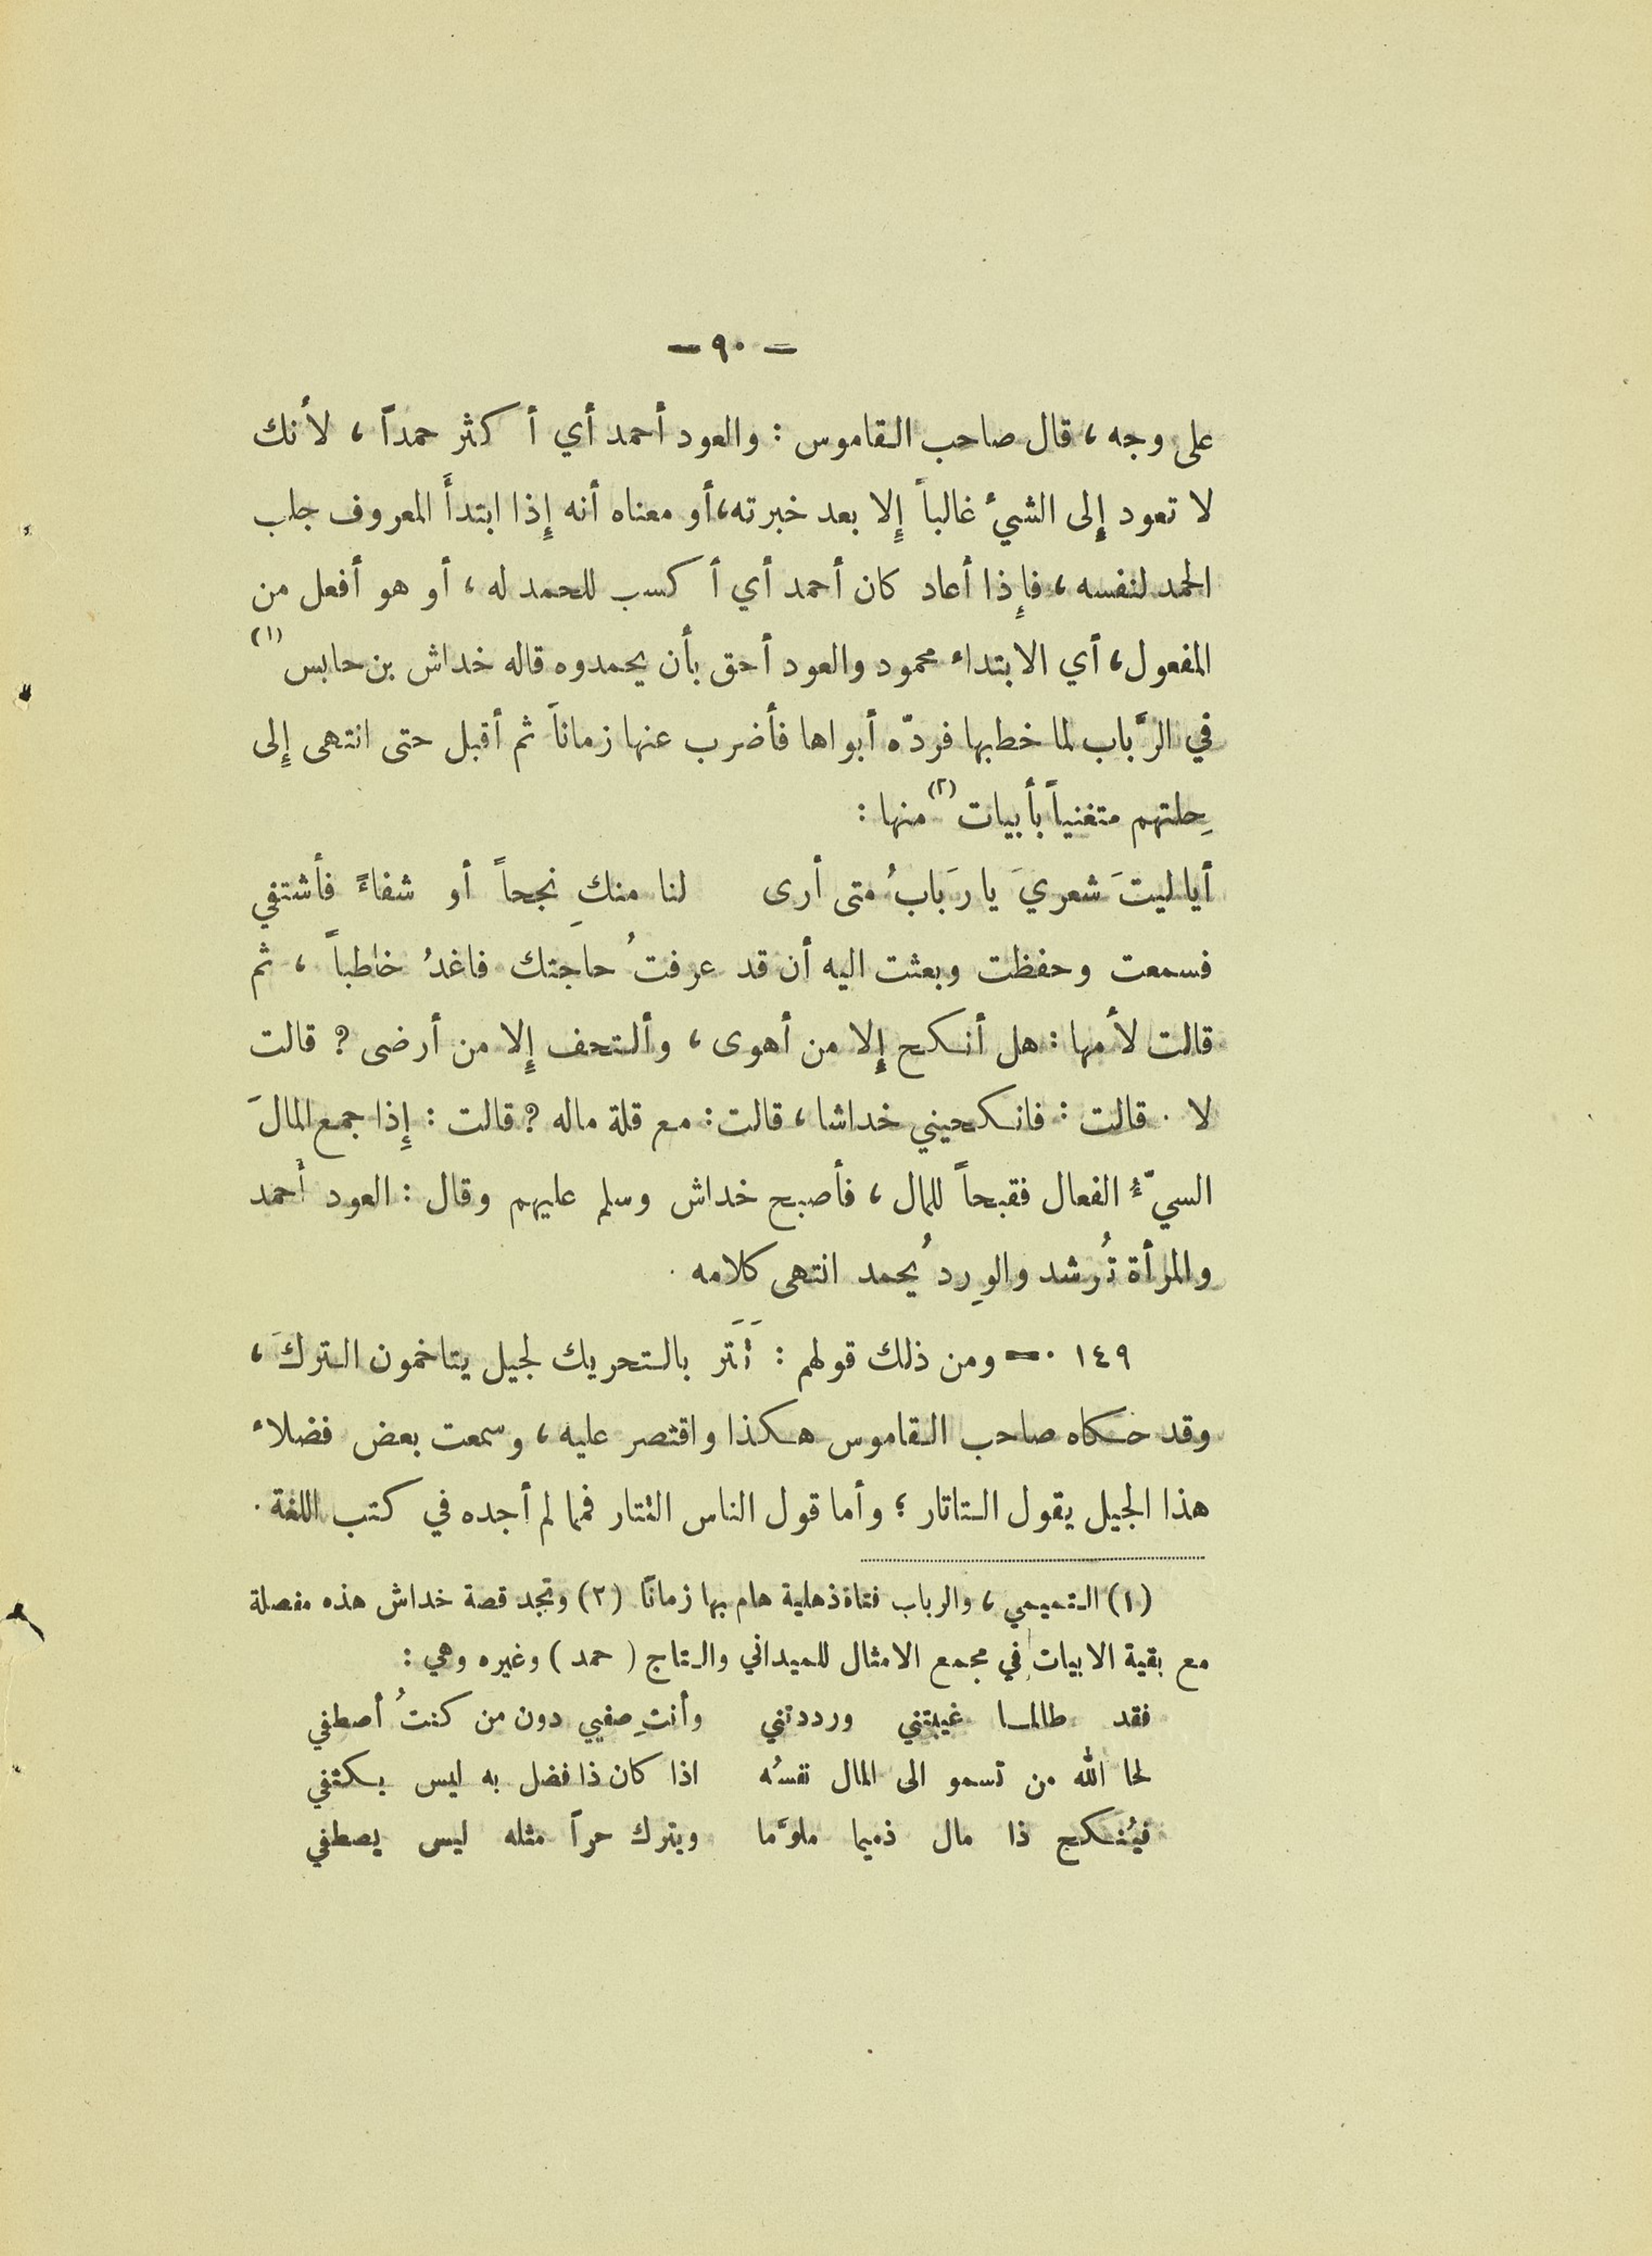 — ٩٠ —
على وجه ، قال صاحب القاموس : والعود أحمد أي أكثر حمداً ، لأنك
لا تعود إِلى الشيءُ غالباً إِلا بعد خبرته، أو معناه أنه إِذا ابتدأَ المعروف جلب
الحمد لنفسه ، فإِذا أعاد كان أحمد أي أكسب للحمد له ، أو هو أفعل من
المفعول ، أي الابتداء محمود والعود أحق بأن يحمدوه قاله خداش بن حابس (١)
في الرَّباب لما خطبها فردّه أبواها فأضرب عنها زماناً ثم أقبل حتى انتهى إِلى
حِلتهم متغنياً بأبيات (٢) منها :
أيا ليتَ شعريَ يا رَبابُ متى أرى لنا منكِ نجحاً أو شفاءً فأشتفي
فسمعت وحفظت وبعثت اليه أن قد عرفتُ حاجتك فاغدُ خاطباً ، ثم
قالت لأمها : هل أنكح إِلا من أهوى ، وألتحف إِلا من أرضى ? قالت
لا . قالت : فانكحيني خداشا ، قالت : مع قلة ماله ? قالت : إِذا جمع المالَ
السيّءُ الفعال فقبحاً للمال ، فأصبح خداش وسلم عليهم وقال : العود أحمد
والمرأة تُرشد والوِرد يُحمد انتهى كلامه .
١٤٩ .— ومن ذلك قولهم : تَتَر بالتحريك لجيل يتاخمون التركَ ،
وقد حكاه صاحب القاموس هكذا واقتصر عليه ، وسمعت بعض فضلاء
هذا الجيل يقول التاتار ؛ وأما قول الناس التتار فمما لم أجده في كتب اللغة .
(١) التميمي ، والرباب فتاة ذهلية هام بها زماناً (٢) وتجد قصة خداش هذه مفصلة
مع بقية الابيات في مجمع الامثال للميداني والتاج ( حمد ) وغيره وهي :
فقد طالما غيبتني ورددتني وأنتِ صفيي دون من كنتُ أصطفي
لحا الله من تسمو الى المال نفسُه اذا كان ذا فضل به ليس يكتفي
فيُنكح ذا مال ذميما ملوَّما ويترك حراً مثله ليس يصطفي